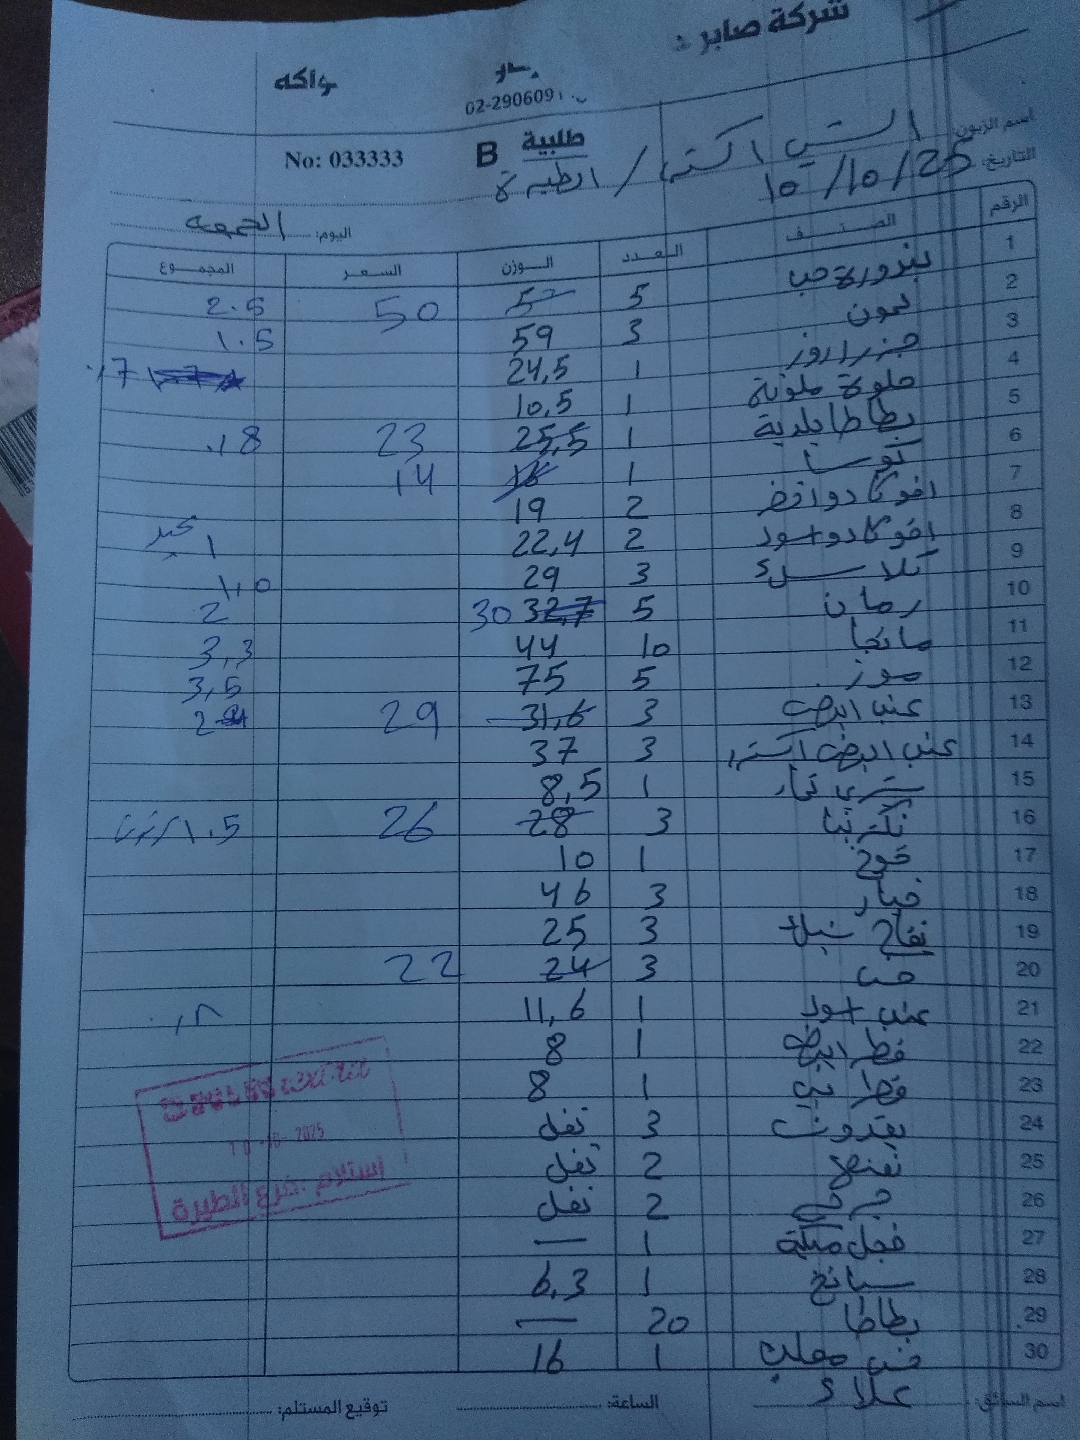 شركة صابر
واكه
02-290609
اسم الزبون: الشني اكسترا / الطيرة
طلبية B No: 033333
التاريخ: 10/10/25
اليوم: الجمعه
الرقم الصنف العدد الوزن السعر المجموع
1 بندورة حب 5 52 50 2.5
2 ليمون 3 59 1.5
3 جزر اروز 1 24,5 0,7
4 حلوة ملونة 1 10,5
5 بطاطا بلدية 1 25,5 23 0,8
6 كوسا 1 16 14
7 افوكادو اخضر 2 19
8 افوكادو اسود 2 22,4 1
9 كلاسلري 3 29 1,0
10 رمان 5 32,7 30 2
11 مانجا 10 44 3,3
12 موز 5 75 3,5
13 عنب ابيض 3 31,6 29 2
14 عنب ابيض اكسترا 3 37
15 1 8,5
16 نكترينا 3 28 26 1.5
17 خوخ 1 10
18 خيار 3 46
19 تفاح 3 25
20 3 24 22
21 عنب اسود 1 11,6
22 فطر ابيض 1 8
23 فطر بني 1 8
24 بقدونس 3 نفل
25 نعنع 2 نفل
26 2 نفل
27 فجل 1 —
28 سبانخ 1 6,3
29 بطاطا 20 —
30 خس 1 16
10 - 10 - 2025
استلام :فرع الطيرة
اسم السائق: علاء الساعة: توقيع المستلم: